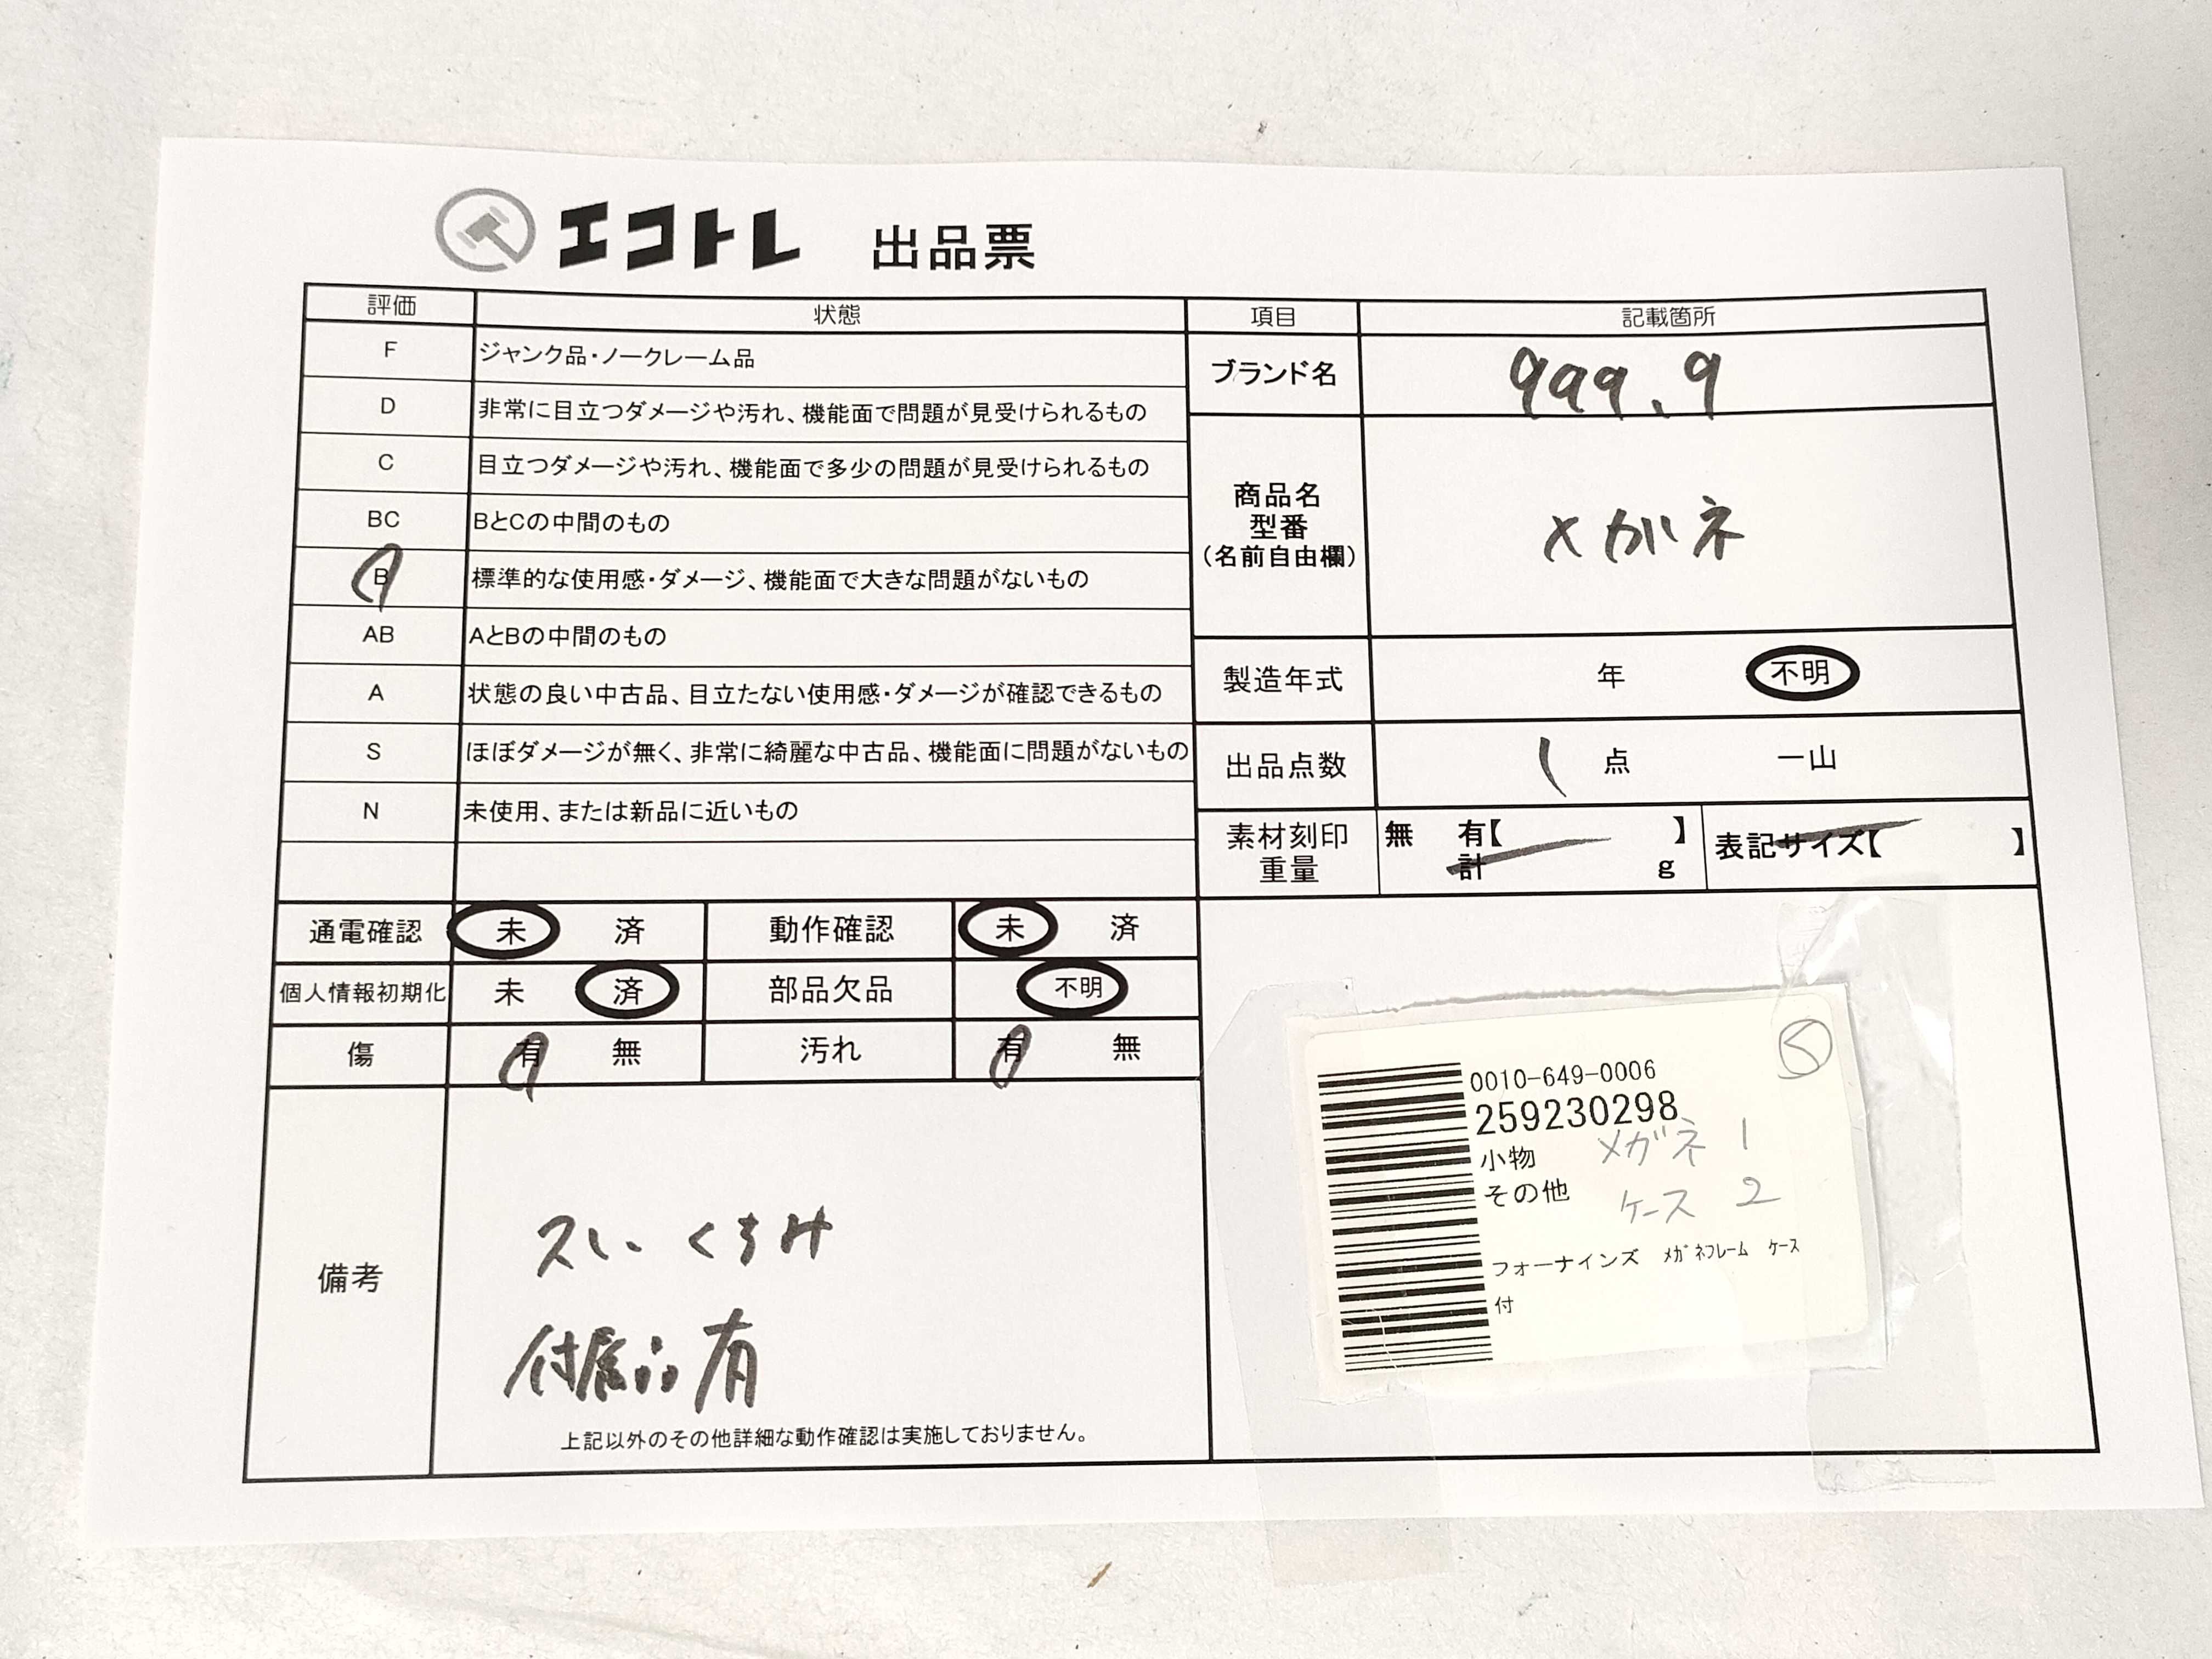 エコトレ 出品票
評価 状態
F ジャンク品・ノークレーム品
D 非常に目立つダメージや汚れ、機能面で問題が見受けられるもの
C 目立つダメージや汚れ、機能面で多少の問題が見受けられるもの
BC BとCの中間のもの
B 標準的な使用感・ダメージ、機能面で大きな問題がないもの
AB AとBの中間のもの
A 状態の良い中古品、目立たない使用感・ダメージが確認できるもの
S ほぼダメージが無く、非常に綺麗な中古品、機能面に問題がないもの
N 未使用、または新品に近いもの
通電確認 未 済 動作確認 未 済
個人情報初期化 未 済 部品欠品 不明
傷 有 無 汚れ 有 無
備考
スレ・くすみ
付属品有
上記以外のその他詳細な動作確認は実施しておりません。
項目 記載箇所
ブランド名 999.9
商品名
型番
(名前自由欄)
メガネ
製造年式 年 不明
出品点数 1 点 一山
素材刻印 無 有【 】
重量 計 g
表記サイズ【 】
0010-649-0006
259230298
小物 メガネ 1
その他 ケース 2
フォーナインズ メガネフレーム ケース
付